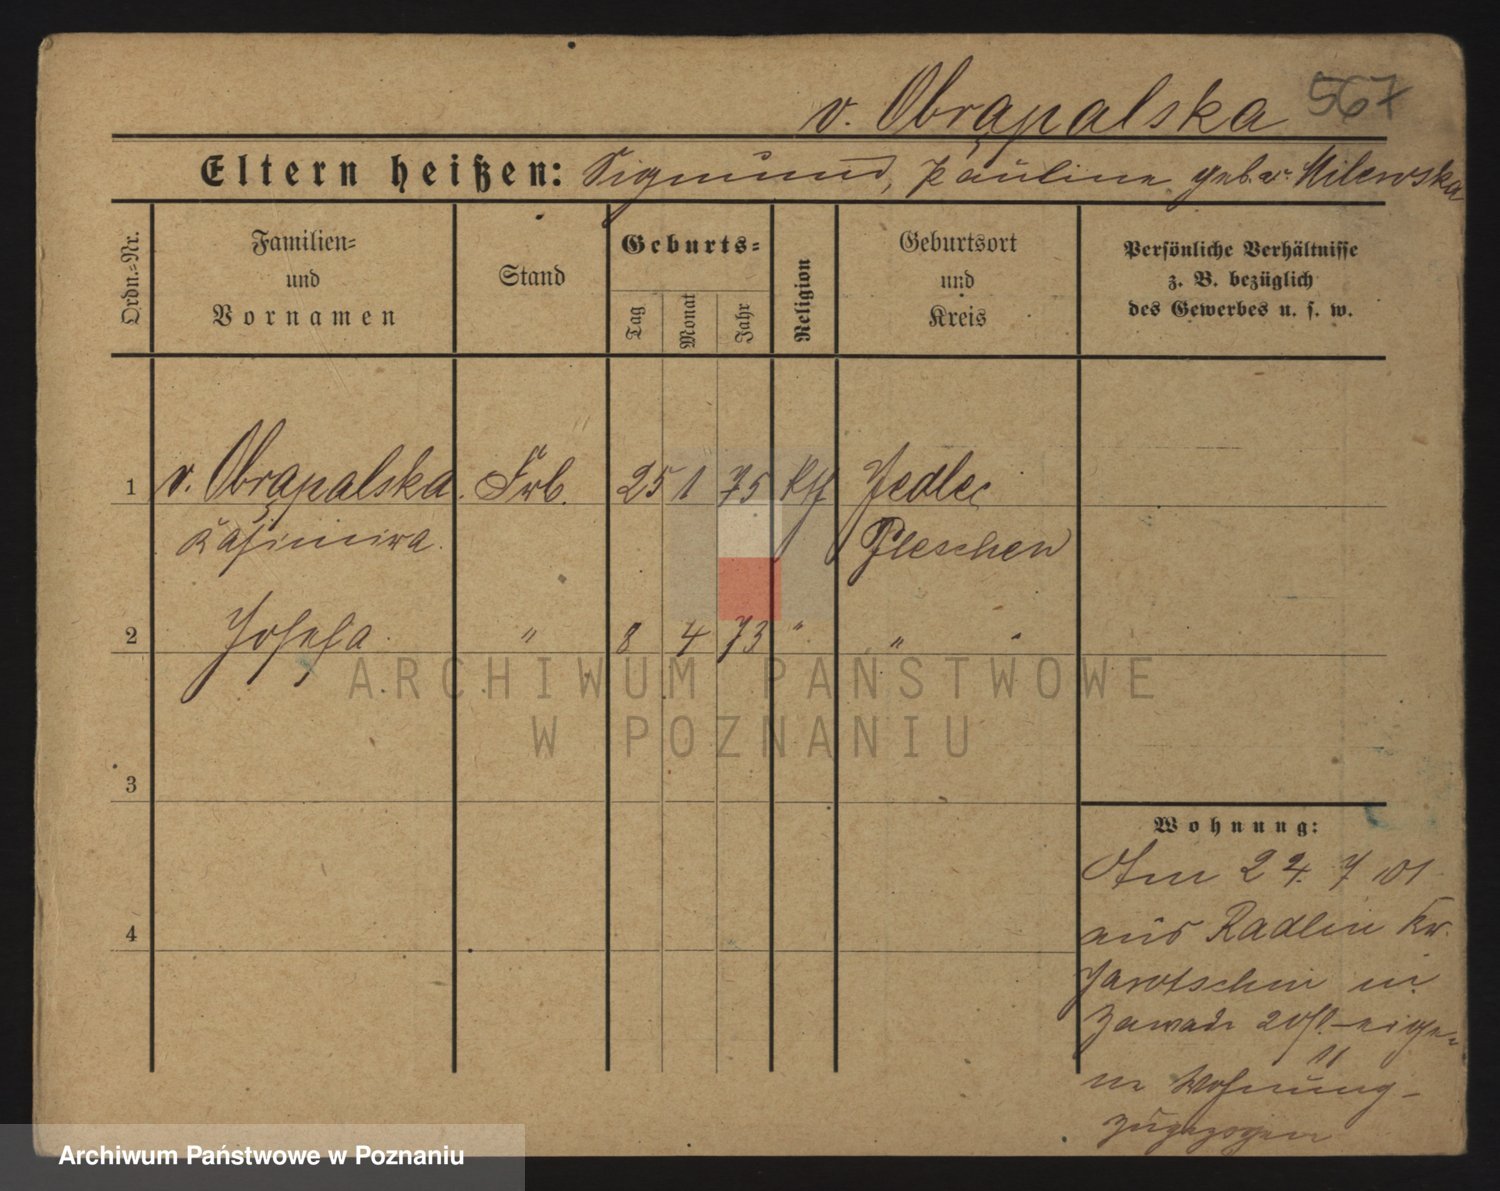 v. Obrąpalska 567
Eltern heißen: Sigmund, Pauline geb. v. Milewska
Ordn.=Nr.
Familien=
und
Vornamen
Stand
Geburts=
Tag
Monat
Jahr
Religion
Geburtsort
und
Kreis
Persönliche Verhältnisse
z. B. bezüglich
des Gewerbes u. s. w.
1 v. Obrąpalska Frl. 25 1 75 Kth Jedlec
Kasimira. Pleschen
2 Josefa " 8 4 73 " " "
3
4
Wohnung:
Am 24. 7 01
aus Radlin Kr.
Jarotschin in
Zawade eige=
ne Wohnung
zugezogen
ARCHIWUM PAŃSTWOWE
W POZNANIU
Archiwum Państwowe w Poznaniu